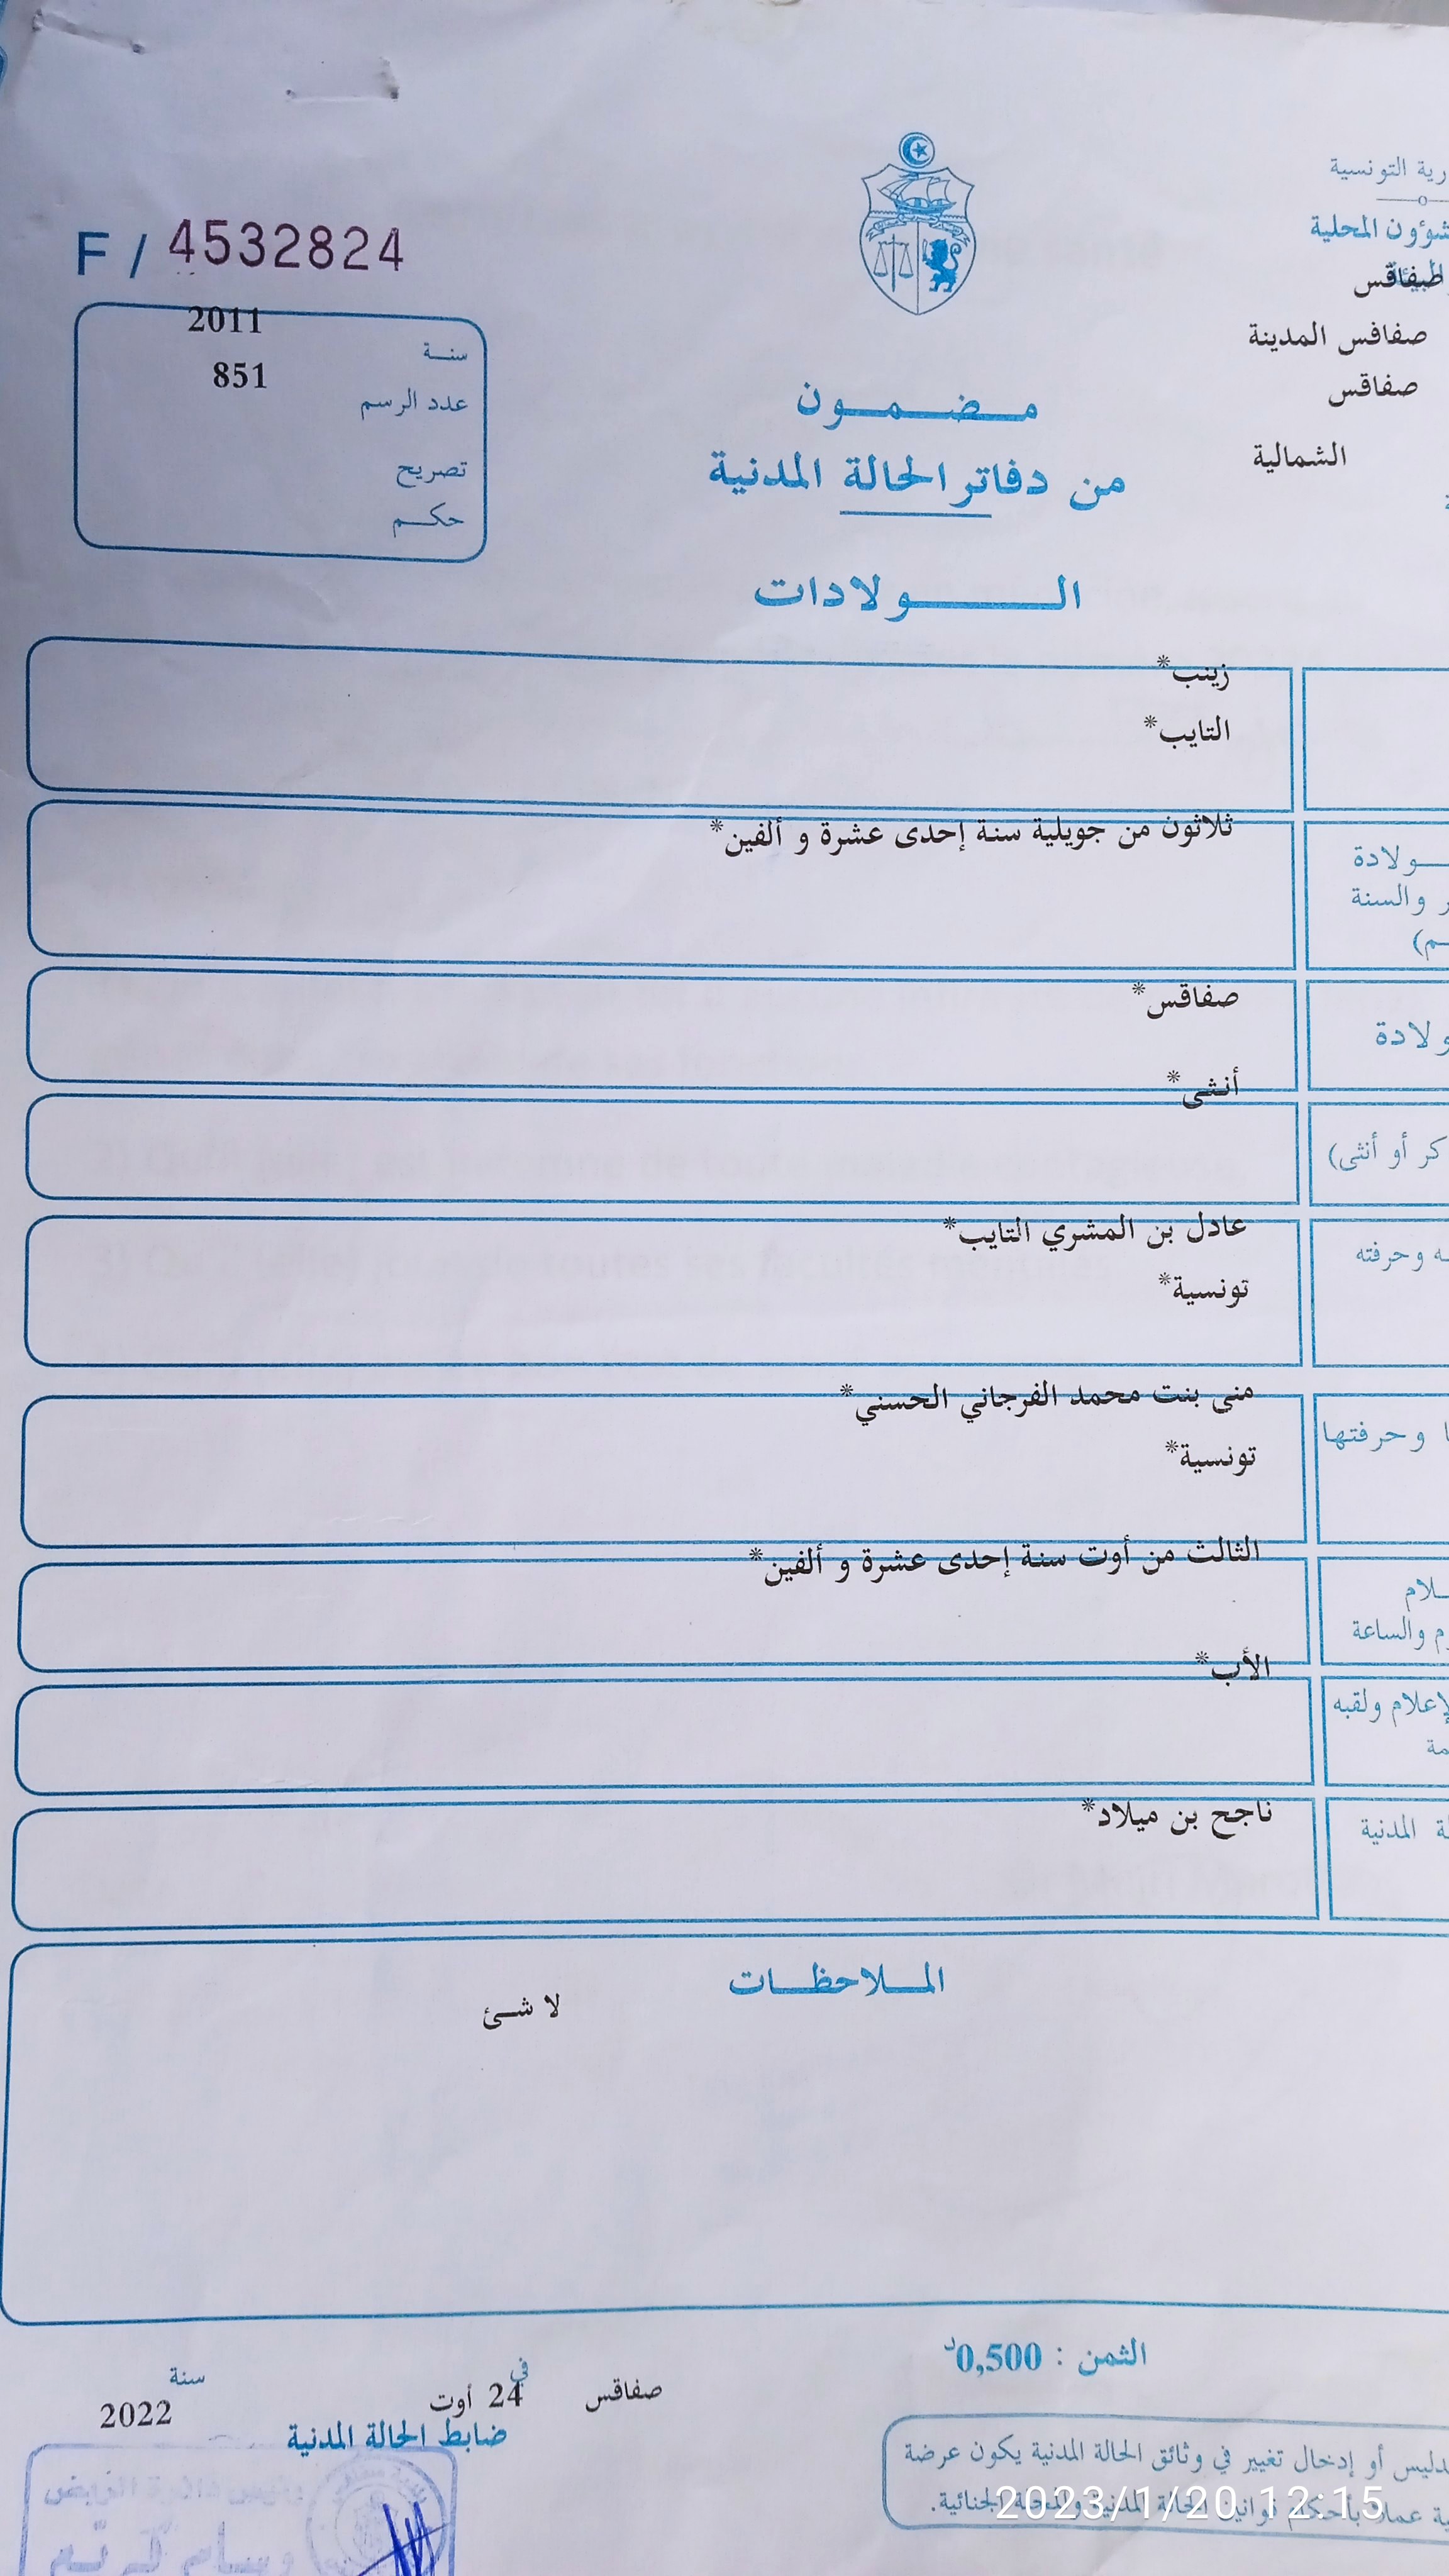 التونسية
المحلية
صفاقس
صفاقس المدينة
صفاقس
الشمالية
F / 4532824
سنة 2011
عدد الرسم 851
تصريح
حكم
مضمون
من دفاتر الحالة المدنية
الولادات
زينب*
التايب*
ثلاثون من جويلية سنة إحدى عشرة و ألفين*
والسنة
صفاقس*
أنثى*
أو أنثى)
عادل بن المشري التايب*
وحرفته
تونسية*
منى بنت محمد الفرجاني الحسني*
وحرفتها
تونسية*
الثالث من أوت سنة إحدى عشرة و ألفين*
والساعة
الأب*
ولقبه
ناجح بن ميلاد*
المدنية
الملاحظات
لا شئ
الثمن : 0,500د
صفاقس في 24 أوت سنة 2022
ضابط الحالة المدنية
أو إدخال تغيير في وثائق الحالة المدنية يكون عرضة
عملا بأحكام قوانين الحالة المدنية الجنائية.
2023/1/20 12:15